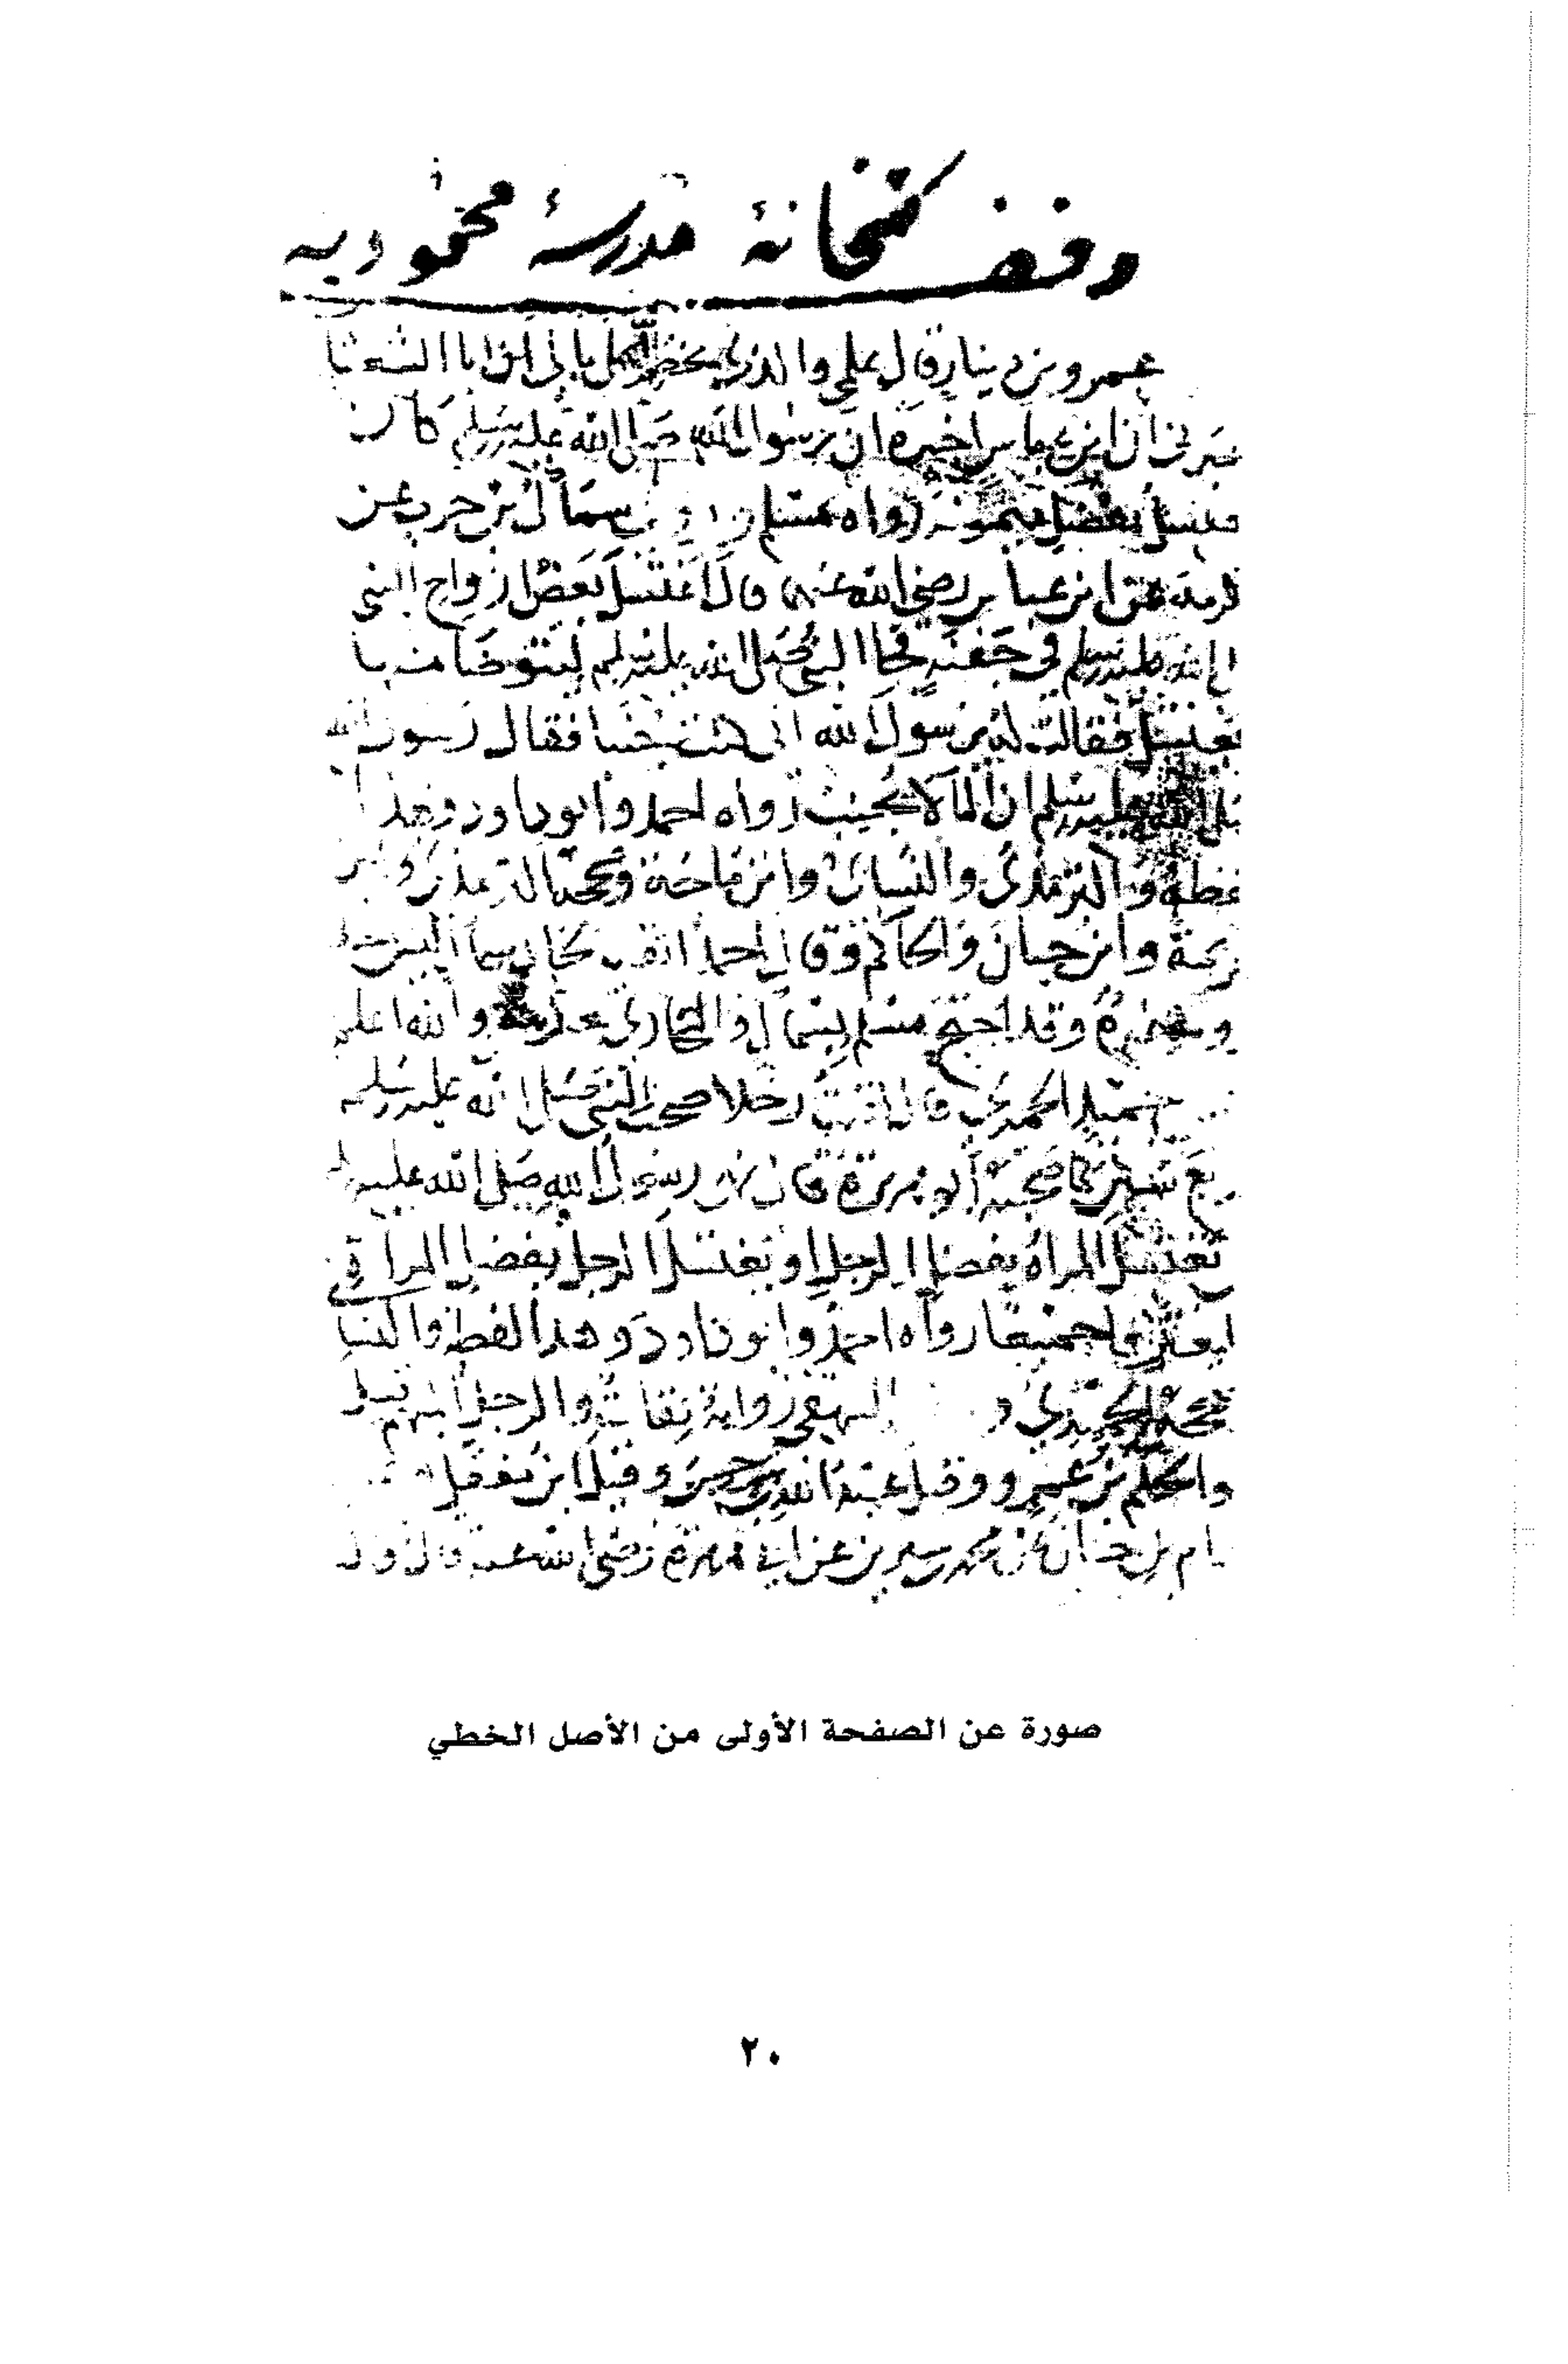 وقف كتبخانهٔ مدرسهٔ محموديه
عمرو بن دينار قال علمي والذي يخطر على بالي ان ابا الشعثا
اخبرني ان ابن عباس اخبره ان رسول الله صلى الله عليه وسلم كان
يغتسل بفضل ميمونة رواه مسلم وعن سماك بن حرب عن
عكرمة عن ابن عباس رضي الله عنهما قال اغتسل بعض ازواج النبي
صلى الله عليه وسلم في جفنة فجا النبي صلى الله عليه وسلم ليتوضا منها
او يغتسل فقالت له يرسول الله اني كنت جنبا فقال رسول الله
صلى الله عليه وسلم ان الما لا يجنب رواه احمد وابو داود وهذا
لفظه والترمذي والنسائي وابن ماجة وصححه الترمذي وابن
خزيمة وابن حبان والحاكم وقال احمد اتقيه لحال سماك ليس احد
يرويه غيره وقد احتج مسلم بسماك والبخاري بعكرمة والله اعلم
حميد الحميري قال لقيت رجلا صحب النبي صلى الله عليه وسلم
اربع سنين كما صحبه ابو هريرة قال نهى رسول الله صلى الله عليه
تغتسل المراة بفضل الرجل او يغتسل الرجل بفضل المراة
ليغترفا جميعا رواه احمد وابو داود وهذا لفظه والنسا
وصححه الحميدي و البيهقي رواته ثقات والرجل المبهم قيل
والحكم بن عمرو وقيل عبد الله بن سرجس وقيل ابن مغفل
هشام بن حسان عن محمد بن سيرين عن ابي هريرة رضي الله عنه قال قال
صورة عن الصفحة الأولى من الأصل الخطي
٢٠